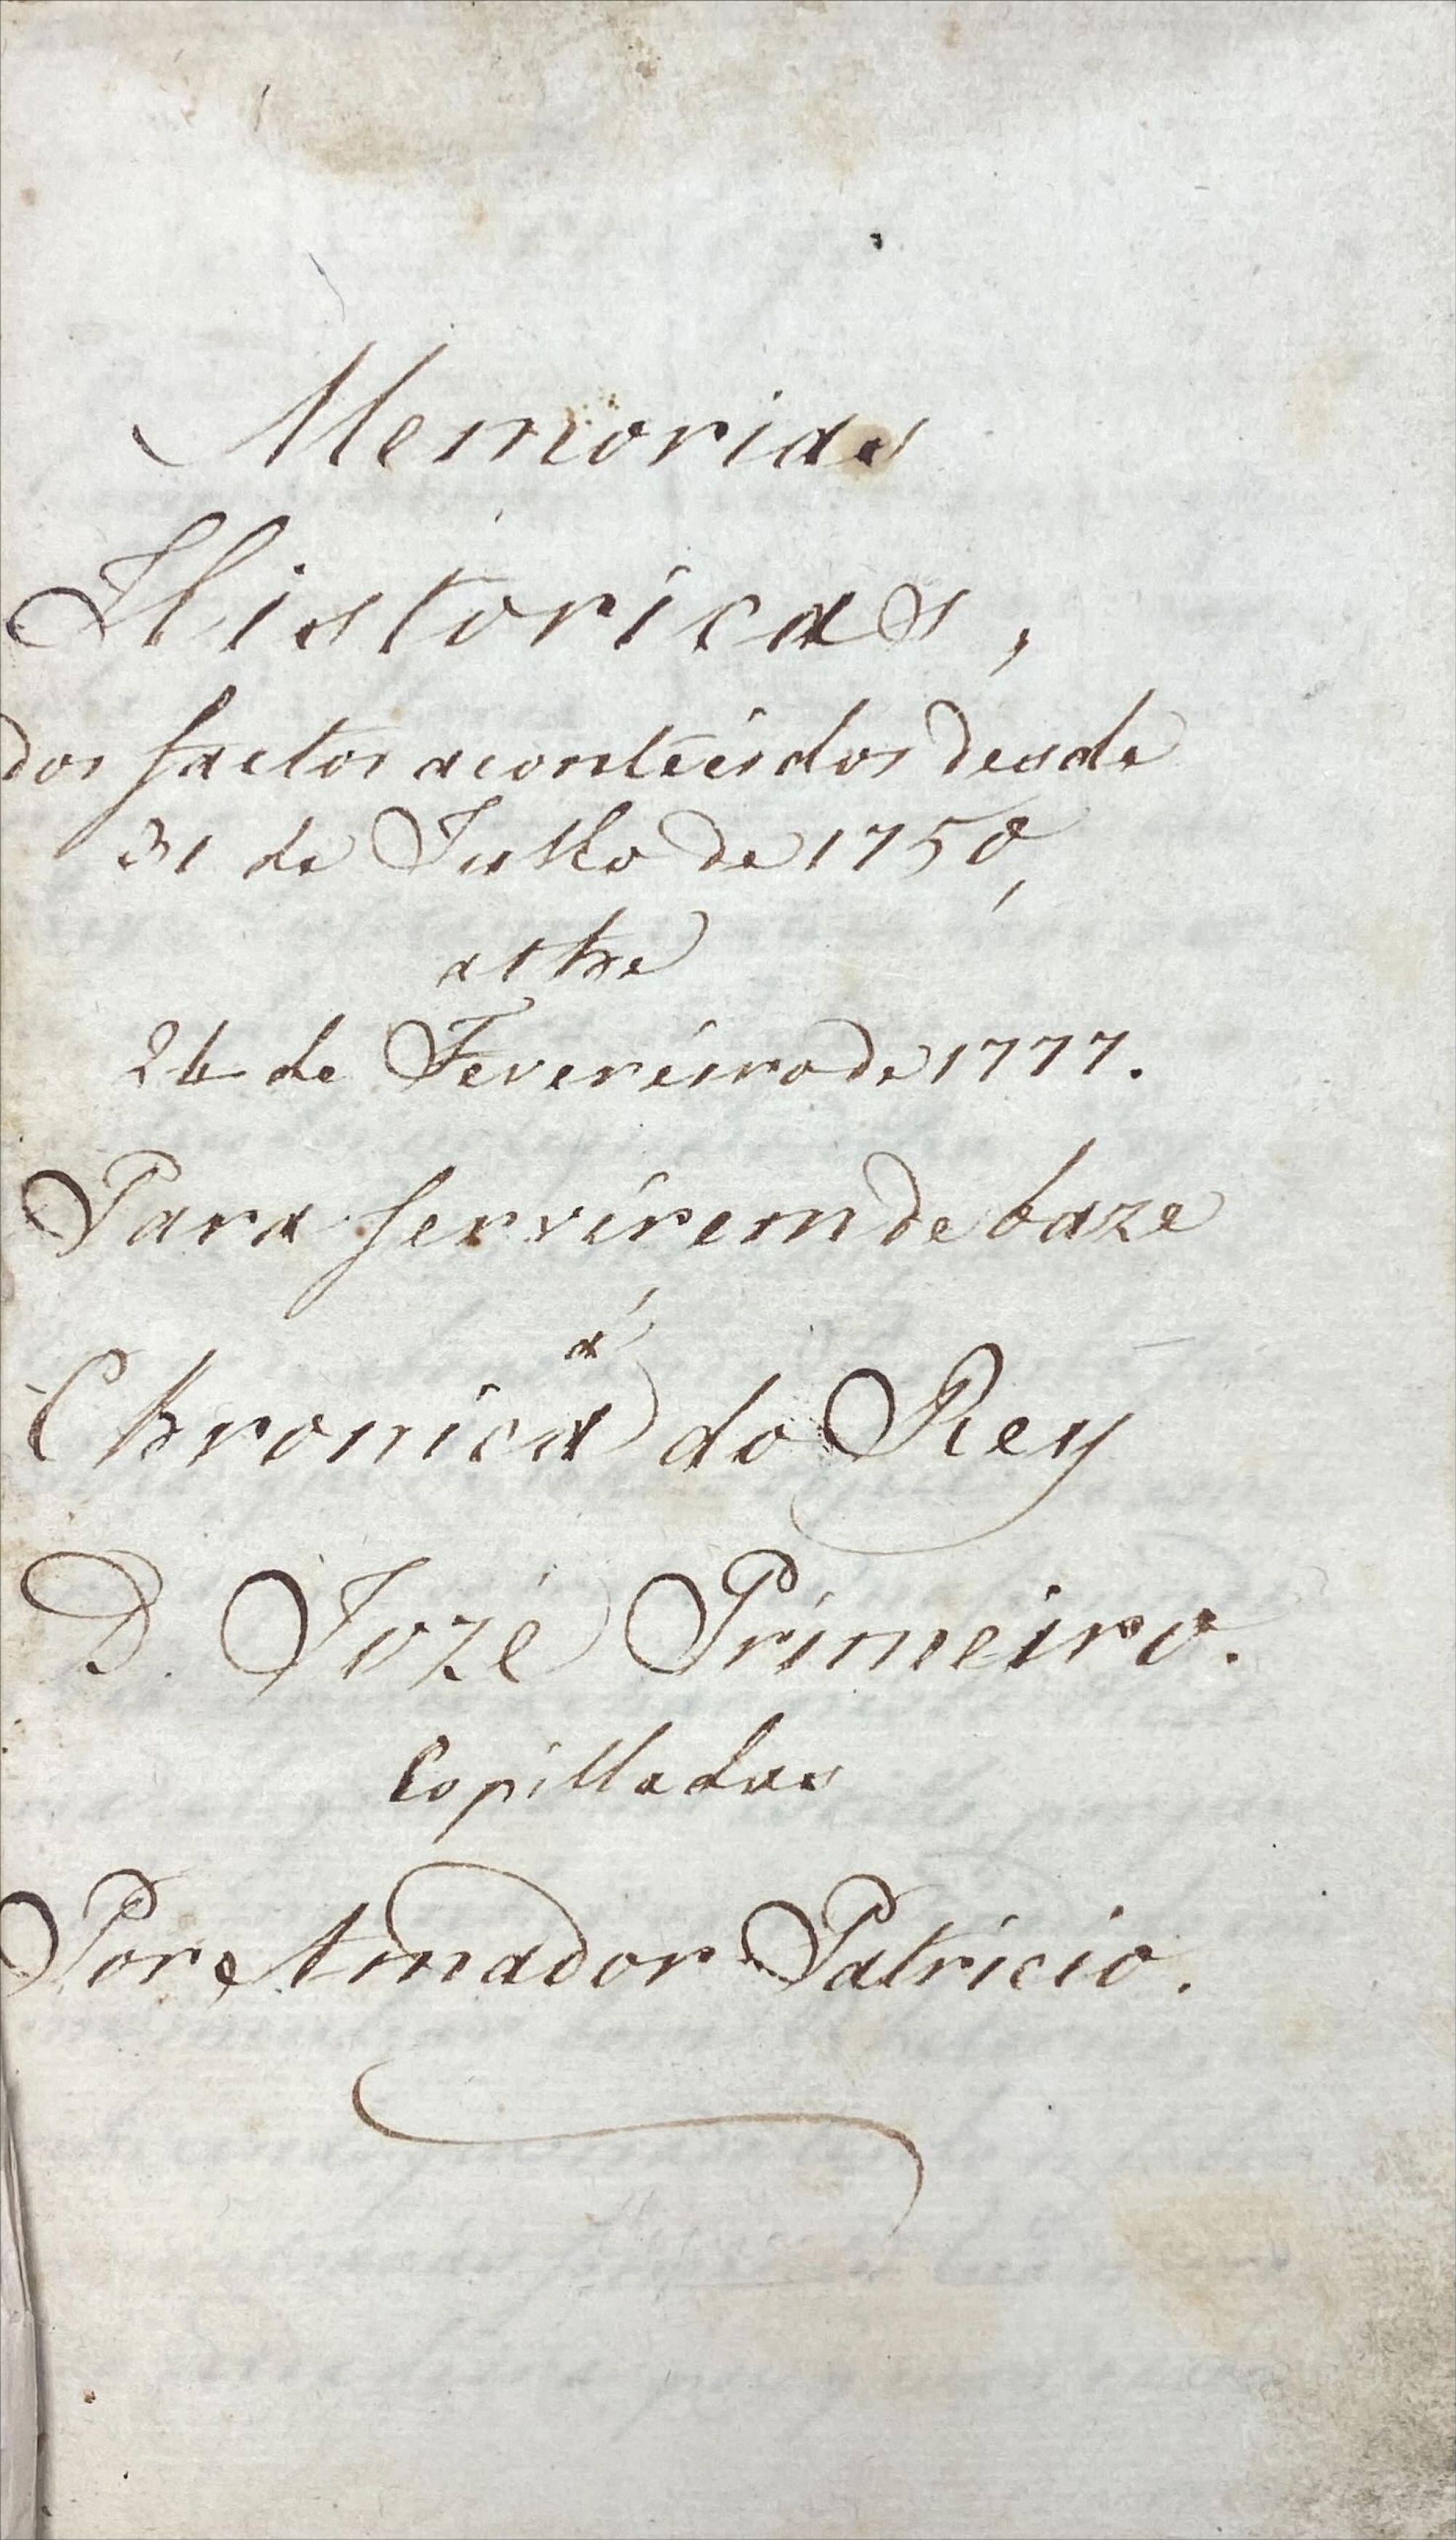 Memorias
Historicas,
dos factos acontecidos desde
31 de Julho de 1750,
athe
24 de Fevereiro de 1777.
Para servirem de baze
á
Chronica do Rey
D. Jozé Primeiro.
Copilladas
Por Amador Patricio.